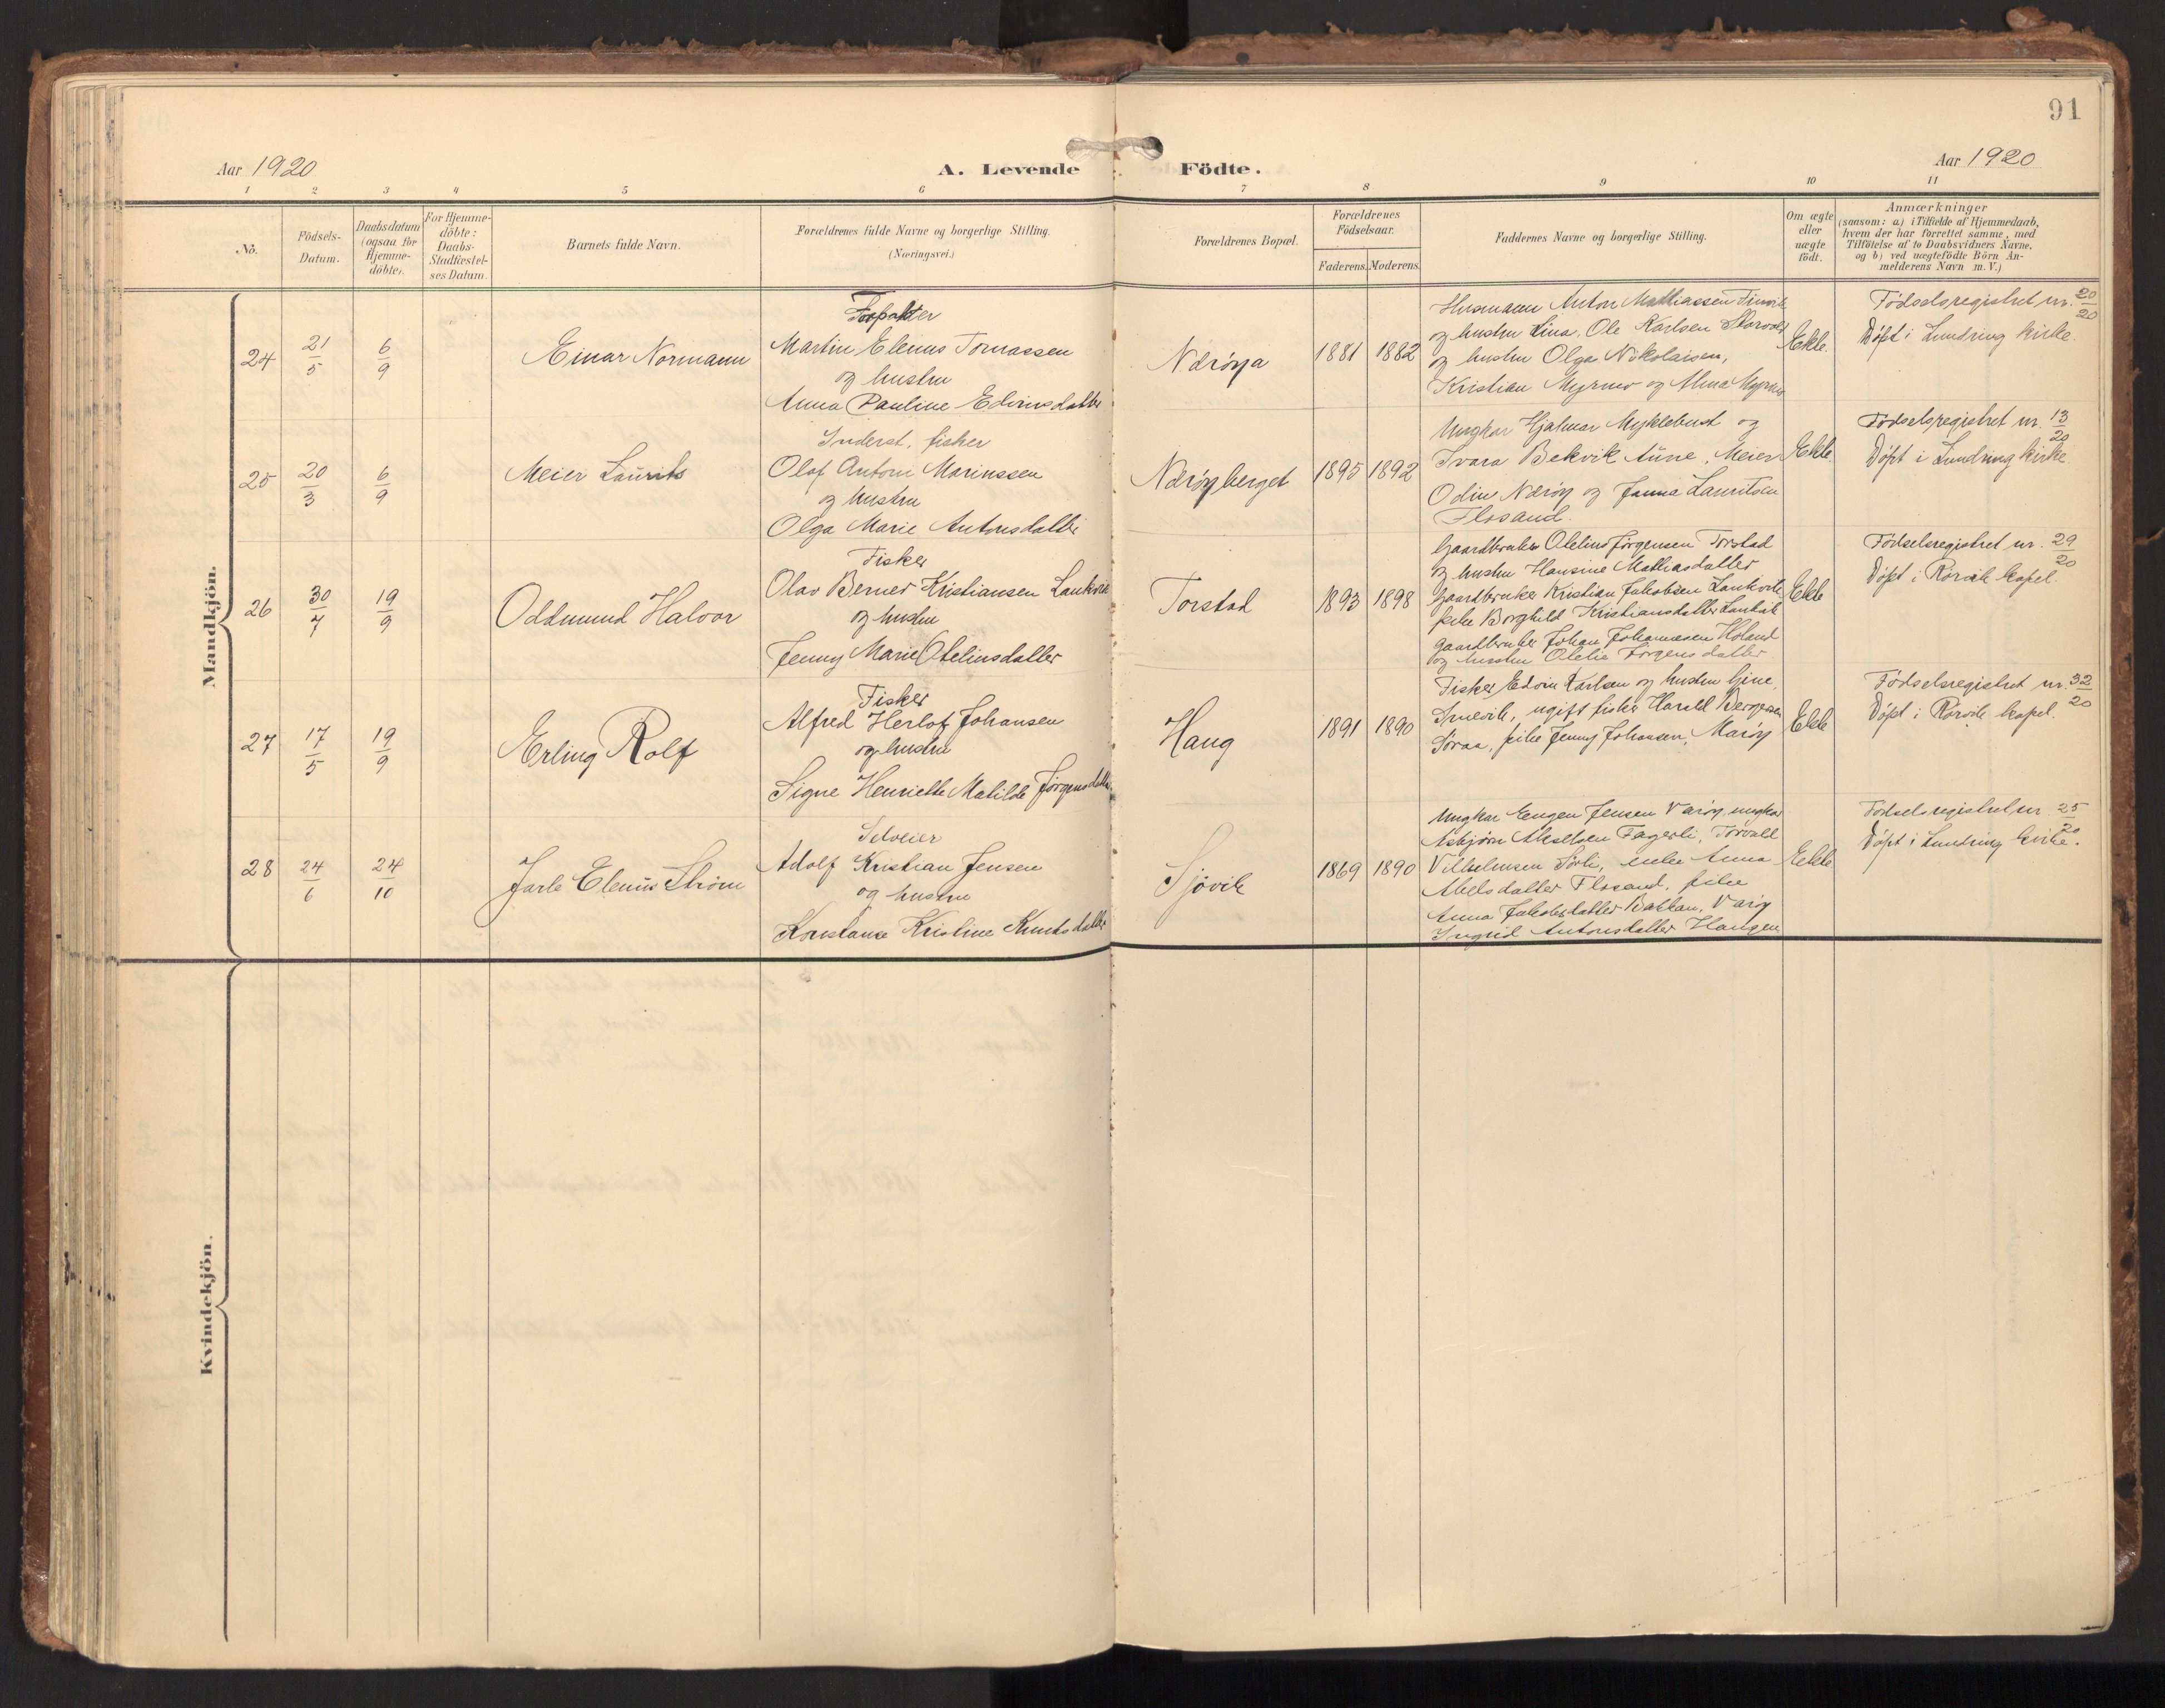 91
Aar 1920
A. Levende Födte.
Aar 1920
1 2 3 4 5 6 7 8 9 10 11
No.
Födsels-
Datum.
Daabsdatum
(ogsaa for
Hjemme-
döbte).
For Hjemme-
döbte:
Daabs-
Stadfæstel-
ses Datum.
Barnets fulde Navn.
Forældrenes fulde Navne og borgerlige Stilling.
(Næringsvei.)
Forældrenes Bopæl.
Forældrenes
Födselsaar.
Faderens. Moderens.
Faddernes Navne og borgerlige Stilling.
Om ægte
eller
uægte
födt.
Anmærkninger
(saasom: a) i Tilfælde af Hjemmedaab,
hvem der har forrettet samme, med
Tilföielse af to Daabsvidners Navne,
og b) ved uægtefödte Börn An-
melderens Navn m. V.)
Mandkjön.
24
21/5
6/9
Einar Normann
Forpakter
Martin Elenus Tomassen
og hustru
Anna Pauline Edvinsdatter
Nærøya
1881 1882
Husmann Anton Mathiassen Finvik
og hustru Lina, Ole Karlsen
og hustru Olga Nikolaisen,
Kristian Myrmo og Alma Myrmo
Ekte.
Fødselsregistret nr. 20/20
Døpt i Lundring kirke.
25
20/3
6/9
Meier Laurits
Inderst, fisker
Olaf Antoni Marinssen
og hustru
Olga Marie Antonsdatter
Nærøyberget
1895 1892
Ungkar Hjalmar Myklebust og
Ivara Bekvik Aune, Meier
Odin Nærøy og Janna Lauritsen
Flosand.
Ekte.
Fødselsregistret nr. 13/20
Døpt i Lundring kirke
26
30/7
19/9
Oddmund Halvor
Fisker
Olav Berner Kristiansen Lankvik
og hustru
Jenny Marie Otelinsdatter
Torstad
1893 1898
Gaardbruker Otelius Jørgensen Torstad
og hustru Hansine Mathiasdatter
Gaardbruker Kristian Jakobsen Lankvik
pike Borghild Kristiansdatter Lankvik
gaardbruker Johan Johannesen Høland
og hustru Oletie Jørgensdatter
Ekte
Fødselsregistret nr. 29/20
Døpt i Rørvik kapel.
27
17/5
19/9
Erling Rolf
Fisker
Alfred Herlof Johansen
og hustru
Signe Henriette Matilde Jørgensdatter
Haug
1891 1890
Fisker Edvin Karlsen og hustru Gine,
Smevik, ugift fisker Harald Bergesen
Søraa, pike Jenny Johansen, Marøy
Ekte
Fødselsregistret nr. 32/20
Døpt i Rørvik kapel.
28
24/6
24/10
Jarle Elenus Strøm
Selveier
Adolf Kristian Jensen
og hustru
Konstanse Kristine Knutsdatter
Sjøvik
1869 1890
Ungkar Eugen Jensen Varøy, ungkar
Asbjørn Akselsen Fagerli, Torvald
Vilhelmsen Sørli, enke Anna
Abelsdatter Flosand, pike
Anna Jakobsdatter Bakkan, Varøy
Ingrid Antonsdatter Haugen
Ekte
Fødselsregistret nr. 25/20
Døpt i Lundring kirke.
Kvindekjön.